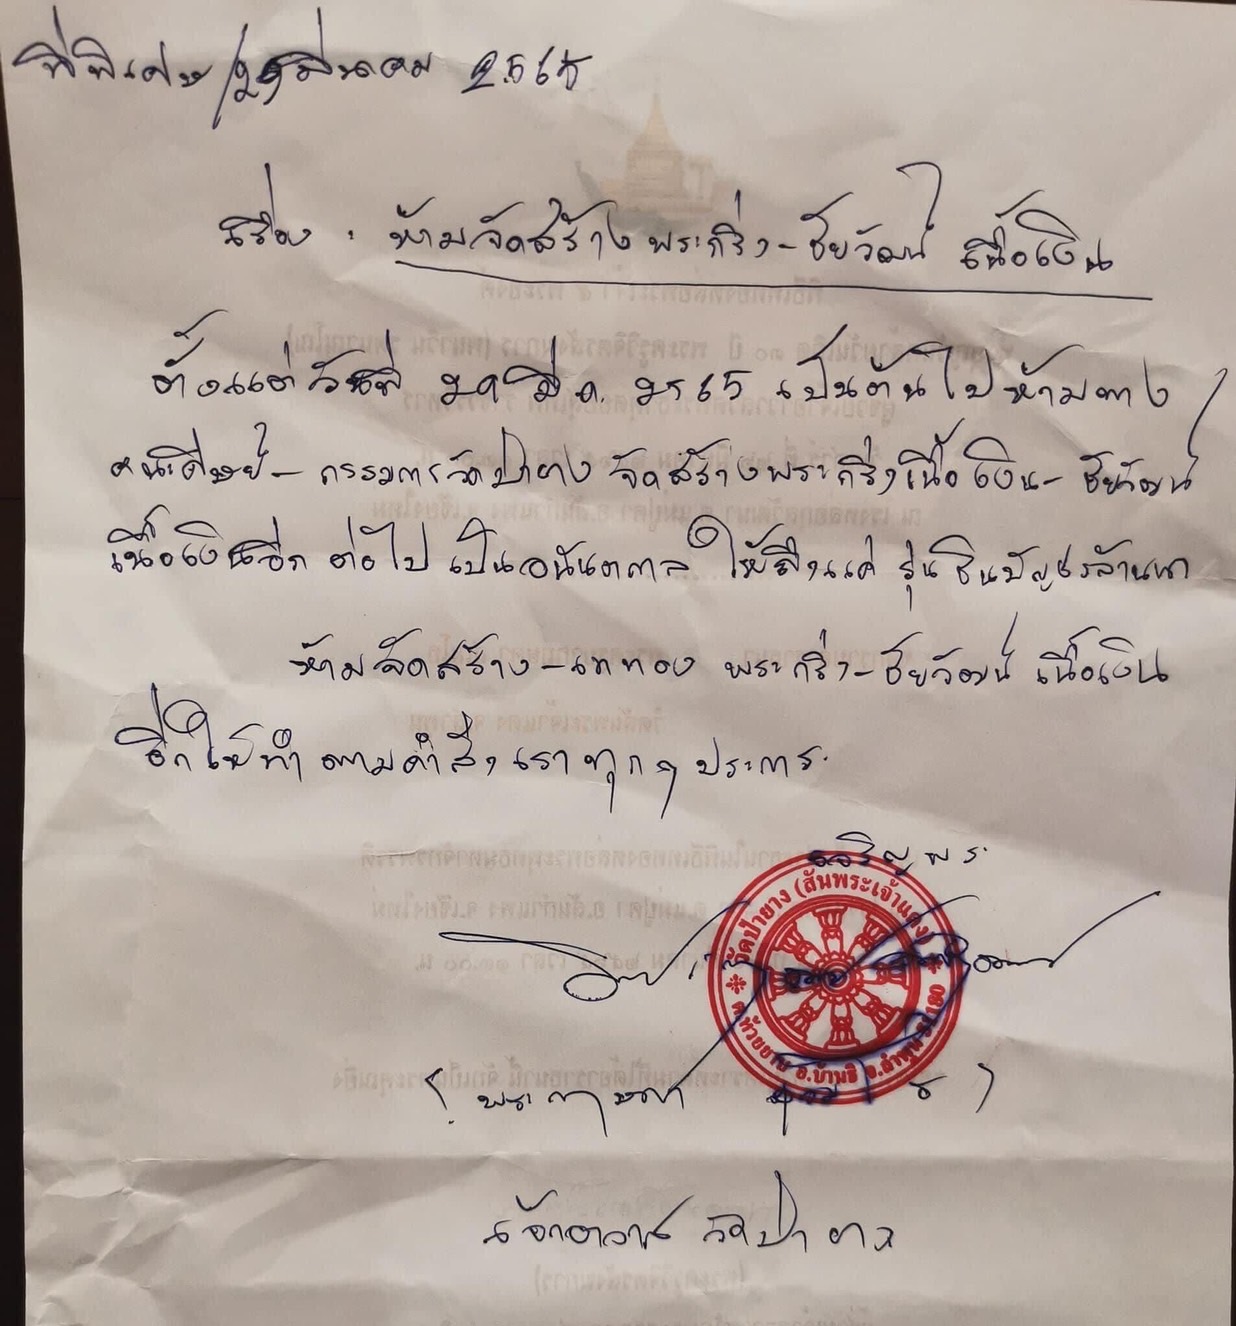 ที่พิเศษ/๒๑ มีนาคม ๒๕๖๕
เรื่อง : ห้ามจัดสร้างพระกริ่ง-ชัยวัฒน์ เนื้อเงิน
ตั้งแต่วันที่ ๒๑ มี.ค. ๒๕๖๕ เป็นต้นไป ห้ามทาง
คณะศิษย์-กรรมการวัดป่ายาง จัดสร้างพระกริ่งเนื้อเงิน-ชัยวัฒน์
เนื้อเงินอีก ต่อไป เป็นอนันตกาล ให้ถึงแค่ รุ่นชินบัญชรล้านนา
ห้ามจัดสร้าง-เททอง พระกริ่ง-ชัยวัฒน์ เนื้อเงิน
อีกให้ทำตามคำสั่งเราทุกๆประการ
เจริญพร
วัดป่ายาง (สันพระเจ้าแดง)
ต.ห้วยยาบ อ.บ้านธิ จ.ลำพูน 51180
(พระ
เจ้าอาวาส วัดป่ายาง